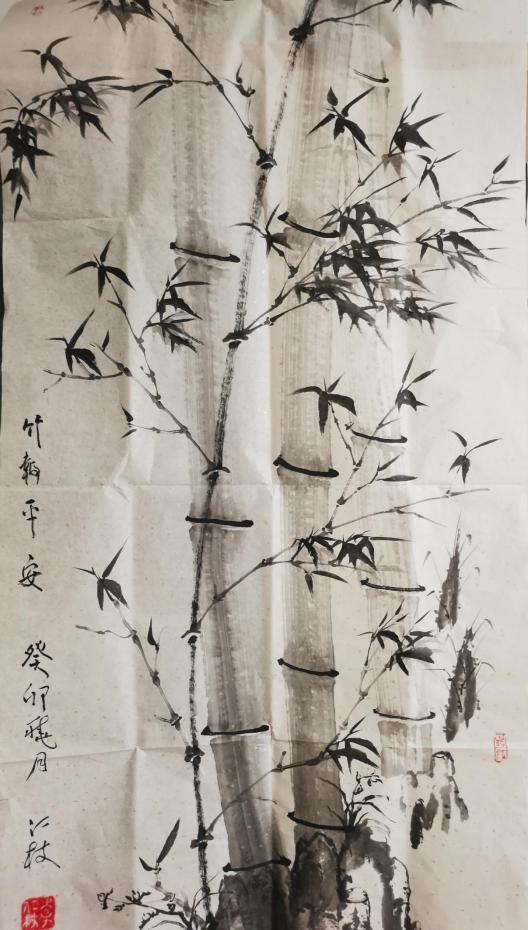 竹報平安 癸卯晓月 仁枝